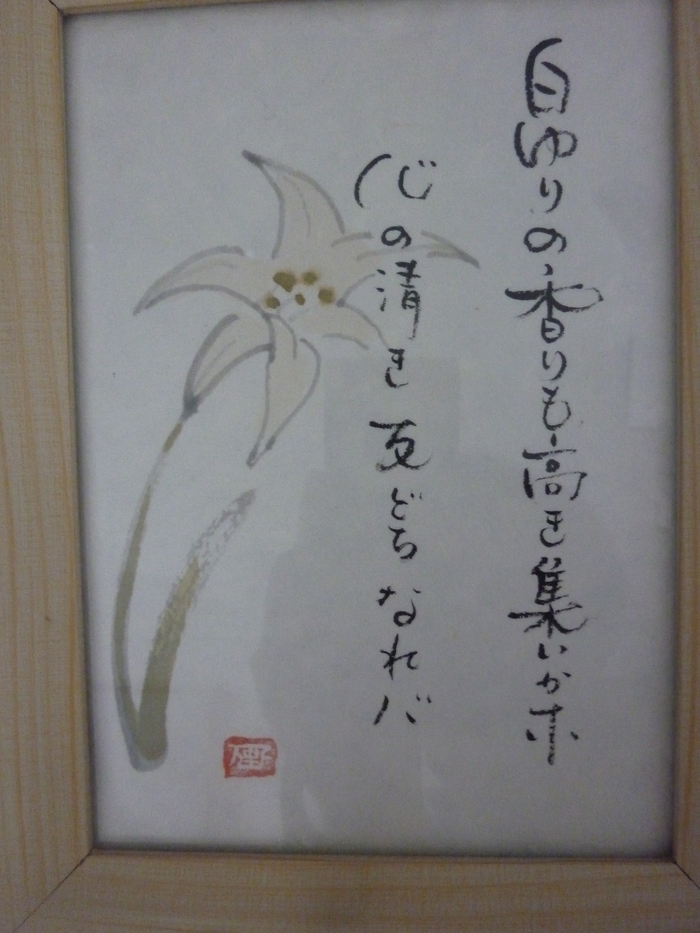 白ゆりの香りも高き集いかホ
心の清き友どちなれバ